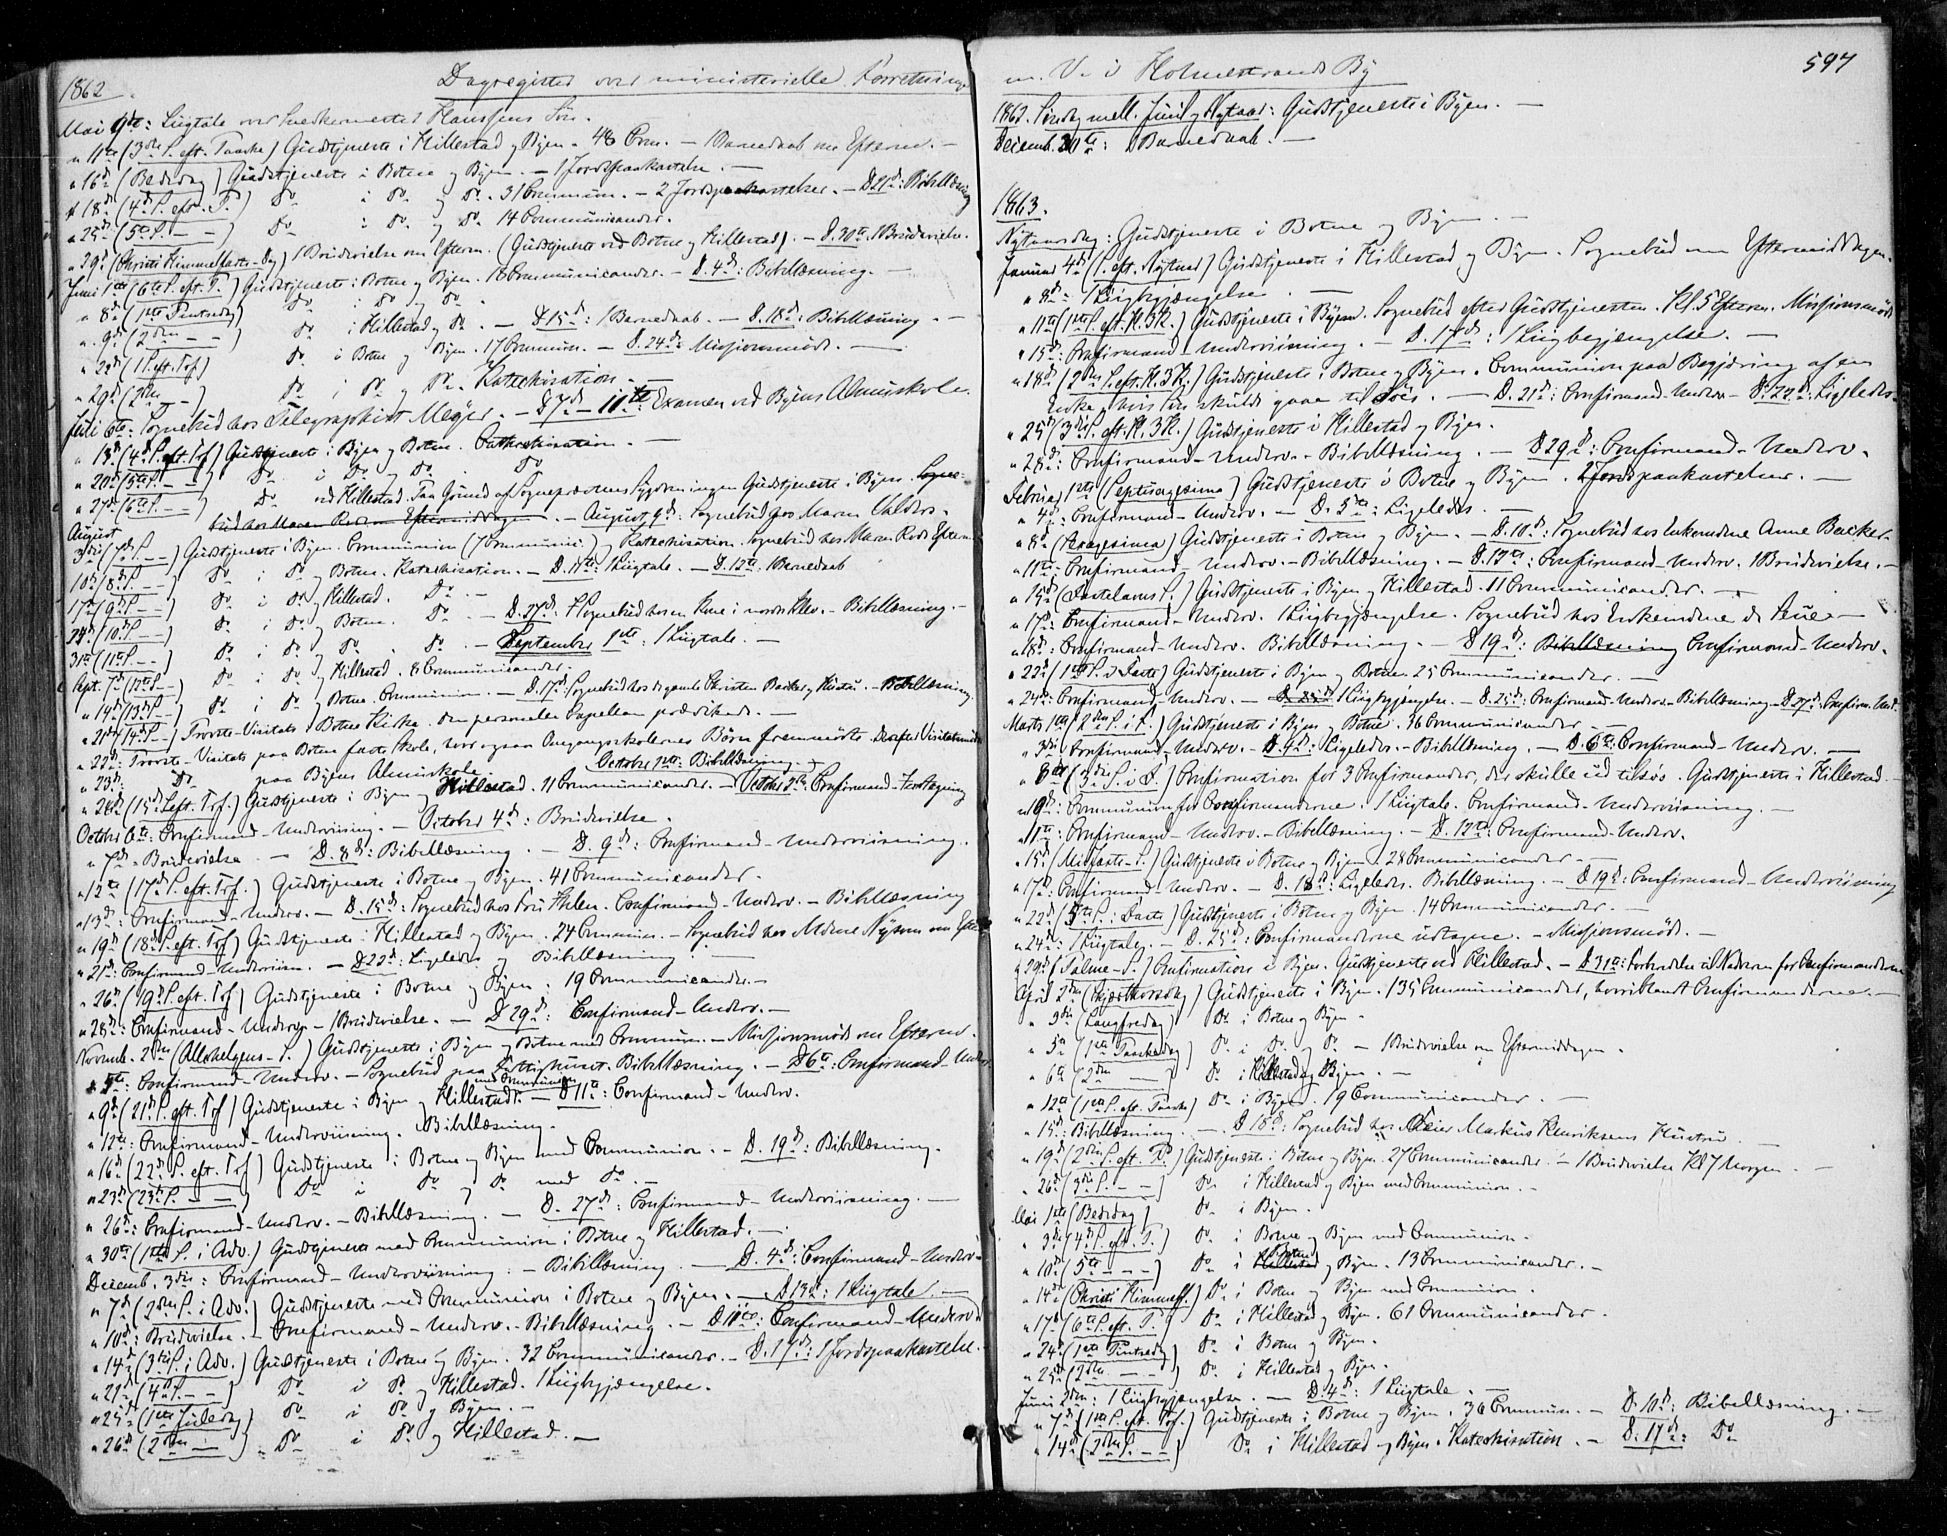 1862.
Dagregister over ministerielle Forretninger
Mai 9de: Liigtale over Snedkermester Hanssens Søn.
" 11te (3die S. eft. Paaske) Gudstjeneste i Hillestad og Byen. 48 Com. — Barnedaab om Efterm. —
" 16de (Bededag) Gudstjeneste i Botne og Byen. — 1 Jordspaakastelse. —
" 18de (4de S. eft. P.) Do i Do og Do. 31 Commun. — 2 Jordspaakastelser. — D. 21de: Bibellæsning
" 25de (5te S. — —) Do i Do og Do 14 Communicander.
" 29de (Christi Himmelfarts-Dag) 1 Brudevielse om Efterm. (Gudstjeneste ved Botne og Hillestad). — D. 30te 1 Brudevielse.
Juni 1ste (6te S. eft. P.) Gudstjeneste i Botne og Byen. 16 Communicander. — D. 4de: Bibellæsning. —
" 8de (1ste Pintsedag) Do i Do og Do.
" 9de (2den — —) Do i Hillestad og Do. — D. 15de: 1 Barnedaab. — D. 18de: Bibellæsning. —
" 22de (1 S. eft. Tref.) Do i Botne og Byen. 17 Commun. — D. 24de: Missionsmøde. —
" 29de (2den — —) Do i Do og Do. Katechisation. —
Juli 6te: Sognebud hos Telegraphist Meyer. — D. 7de – 11te: Examen ved Byens Almuskole.
" 13de (4de S. eft. Tref.) Gudstjeneste i Byen og Botne. Cathechisation. —
" 20de (5te S. — —) Do i Do og Do. Do
" 27de (6te S. — —) Do ved Hillestad. Paa Grund af Sognepræstens Sygdom ingen Gudstjeneste i Byen. Sogne-
bud hos Maren Rød om Eftermiddagen. — August 9de: Sognebud hos Maren
August
3die (7de S. — —) Gudstjeneste i Byen. Communion (7 Communic.) og Katechisation. Sognebud hos Maren Rød Efterm.
10de (8de S. — —) Do i Do og Botne. Katechisation. — D. 11te: 1 Liigtale. — D. 13te: 1 Barnedaab
17de (9de S. — —) Do i Do og Hillestad. Do. —
24de (10de S. — —) Do i Do og Botne. Do — D. 27de: 1 Sognebud hos en Kone i nordre Klev. — Bibellæsning. —
31te (11te S. — —) Do i Do og Do. Do. — September 1ste: 1 Liigtale. —
Sept. 7de (12te S. — —) Do i Do og Hillestad. 8 Communicander.
" 14de (13de S. — —) Do i Do og Botne. Communion. — D. 17de: Sognebud hos Christen Backer og Hustru. — Bibellæsning.
" 21de (14de S. — —) Provste-Visitats i Botne Kirke. Den personelle Capellan prædikede. —
" 22de: Provste-Visitats paa Botne faste Skole, hvor ogsaa Omgangsskolernes Børn fremmødte. Derefter Visitatsmøde
" 23de: Do paa Byens Almuskole. October 1ste: Bibellæsning og
" 28de (15de S. eft. Tref.) Gudstjeneste i Byen og Hillestad. 11 Communicander. — October 2den: Confirmand-
October 6te: Confirmand-Underviisning. — October 4de: Brudevielse.
" 7de: Brudevielse. — D. 8de: Bibellæsning. — D. 9de: Confirmand-Underviisning.
" 12te (17de S. eft. Tref.) Gudstjeneste i Botne og Byen. 41 Communicander.
" 13de: Confirmand-Underv. — D. 15de: Sognebud hos Fru Confirmand-Underv. — Bibellæsning
" 19de (18de S. eft. Tref.) Gudstjeneste i Hillestad og Byen. 24 Commun. — Sognebud hos om Efterm.
" 21de: Confirmand-Underviisn. — D. 22de: Ligeledes og Bibellæsning. —
" 26de (19de S. eft. Tref.) Gudstjeneste i Botne og Byen. 19 Communicander. —
" 28de: Confirmand-Underv. — 1 Brudevielse. — D. 29de: Confirmand-Underv. —
Novemb. 2den (Allehelgens-S.) Gudstjeneste i Byen og Botne med Commun. — Missionsmøde om Efterm.
" 5te: Confirmand-Underv. — Sognebud paa Fattighuset. Bibellæsning. — D. 6te: Confirmand-Underv.
" 9de (21de S. eft. Tref.) Gudstjeneste i Byen og Hillestad med Communion. — D. 11te: Confirmand-Underv.
" 12te: Confirmand-Underviisning. Bibellæsning.
" 16de (22de S. eft. Tref.) Gudstjeneste i Botne og Byen med Communion. — D. 19de: Bibellæsning.
" 23de (23de S. — —) Do i Do og Do med Do. —
" 26de: Confirmand-Underv. — Bibellæsning. — D. 27de: Confirmand-Underviisning. —
" 30te (1ste S. i Adv.) Gudstjeneste med Communion i Botne og Hillestad. —
Decemb. 3die: Confirmand-Underviisning. — Bibellæsning. — D. 4de: Confirmand-Underv.
" 7de (2den S. i Adv.) Gudstjeneste med Communion i Botne og Byen. — D. 13de: 1 Liigtale. —
" 10de: Brudevielse. — Confirmand-Underv. — Bibellæsning. — D. 11te: Confirmand-Underv.
" 14de (3die S. i Adv.) Gudstjeneste i Botne og Byen. 32 Communicander. — D. 17de: 1 Jordspaakastelse.
" 21de (4de S. — —) Do i Do og Hillestad. 1 Liigbegjængelse.
" 25de (1ste Juledag) Do i Do og Byen. —
" 26de (2den — —) Do i Do og Hillestad. —
m. V. i Holmestrands By
597
1862. Søndag mell. Juul og Nytaar: Gudstjeneste i Byen. —
Decemb. 30te: 1 Barnedaab. —
1863.
Nytaarsdag: Gudstjeneste i Botne og Byen. —
Januar 4de (S. eft. Nytaar) Gudstjeneste i Hillestad og Byen. Sognebud om Eftermiddagen.
" 8de: 1 Liigbegjængelse. —
" 11te (1ste S. eft. H. 3 K.) Gudstjeneste i Byen. Sognebud efter Gudstjenesten. Kl. 5 Efterm. Missionsmøde
" 15de: Confirmand-Underviisning. — D. 17de: 1 Liigbegjængelse. —
" 18de (2den S. eft. H. 3 K.) Gudstjeneste i Botne og Byen. Communion paa Begjæring af en
Enke, hvis Søn skulde gaae til Søes. — D. 21de: Confirmand-Underv. — D. 22de: Ligeledes.
" 25de (3die S. eft. H. 3 K.) Gudstjeneste i Hillestad og Byen.
" 28de: Confirmand-Underv. — Bibellæsning. — D. 29de: Confirmand-Underv.
Februar 1ste (Septuagesima) Gudstjeneste i Botne og Byen. 2 Jordspaakastelser. —
" 4de: Confirmand-Underv. — D. 5te: Ligeledes. —
" 8de (Sexagesima) Gudstjeneste i Botne og Byen. — D. 10de: Sognebud hos Enkemadme Anne Backer.
" 11te: Confirmand-Underv. — Bibellæsning. — D. 12te: Confirmand-Underv. 1 Brudevielse. —
" 15de (Fastelavns S.) Gudstjeneste i Byen og Hillestad. 11 Communicander. —
" 17de: Confirmand-Underv. 1 Liigbegjængelse. Sognebud hos Enkemadme de Seue —
" 18de: Confirmand-Underv. Bibellæsning. — D. 19de: Bibellæsning Confirmand-Underv.
" 22de (1ste S. i Faste) Gudstjeneste i Byen og Botne. 25 Communicander. —
" 24de: Confirmand-Underv. — D. 25de 1 Liigbegjængelse. — D. 25de: Confirmand-Underv. — Bibellæsning — D. 27de: Confirm. Und.
Marts 1ste (2den S. i F.) Gudstjeneste i Byen og Botne. 36 Communicander. —
" 3die: Confirmand-Underv. — D. 4de: Ligeledes. — Bibellæsning. — D. 6te: Confirmand-Underv. —
" 8de (3die S. i F.) Confirmation for 3 Confirmander, der skulle ud tilsøes. Gudstjeneste i Hillestad
" 10de: Communion for Confirmanderne. 1 Liigtale. Confirmand-Underviisning. —
" 11te: Confirmand-Underv. — Bibellæsning. — D. 12te: Confirmand-Underv.
" 15de (Midfaste-S.) Gudstjeneste i Botne og Byen. 28 Communicander. —
" 17de: Confirmand-Underv. — D. 18de: Ligeledes. Bibellæsning. — D. 19de: Confirmand-Underviisning
" 22de (5te S. i Faste) Gudstjeneste i Botne og Byen. 14 Communicander. —
" 24de: 1 Liigtale. — D. 25de: Confirmanderne udtagne. — Missionsmøde. —
" 29de (Palme-S.) Confirmation i Byen. Gudstjeneste ved Hillestad. — D. 31te: Forberedelse til Nadveren for Confirmanderne
April 2den (Skjærthorsdag) Gudstjeneste i Byen. 135 Communicander, hvoriblandt Confirmanderne. —
" 3die (Langfredag) Do i Botne og Byen —
" 5te (1ste Paaskedag) Do i Do og Do — 1 Brudevielse om Eftermiddagen.
" 6te (2den — —) Do i Hillestad og Byen. —
" 12te (1ste S. eft. Paaske) Do i Byen. 19 Communicander. —
" 15de: Bibellæsning. — D. 18de: Sognebud hos Markus Henriksens Hustru. —
" 19de (2den S. eft. P.) Gudstjeneste i Botne og Byen. 27 Communicander. — 1 Brudevielse Kl. 7 Morgen. —
" 26de (3die S. — —) Do i Hillestad og Byen med Communion. —
Mai 1ste (Bededag) Do i Byen.
" 3die (4de S. eft. P.) Do i Botne og Byen med Communion. —
" 10de (5te — — —) Do i Hillestad Botne og Byen. 13 Communicander. —
" 14de (Christi Himmelf.) Do i Botne og Byen med Communion.
" 17de (6te S. eft. P.) Do i Hillestad og Byen. 61 Communicander.
" 24de (1ste Pintsedag) Do i Botne og Byen.
" 25de (2den — —) Do i Hillestad og Byen.
Juni 2den: 1 Liigbegjængelse. — D. 4de: 1 Liigtale. —
" 7de (1ste S. eft. Tref.) Gudstjeneste i Botne og Byen. 36 Commun. — D. 10de: Bibellæsning. —
" 14de (2den S. — —) Do i Hillestad og Byen. Katechisation. — D. 17de: Do